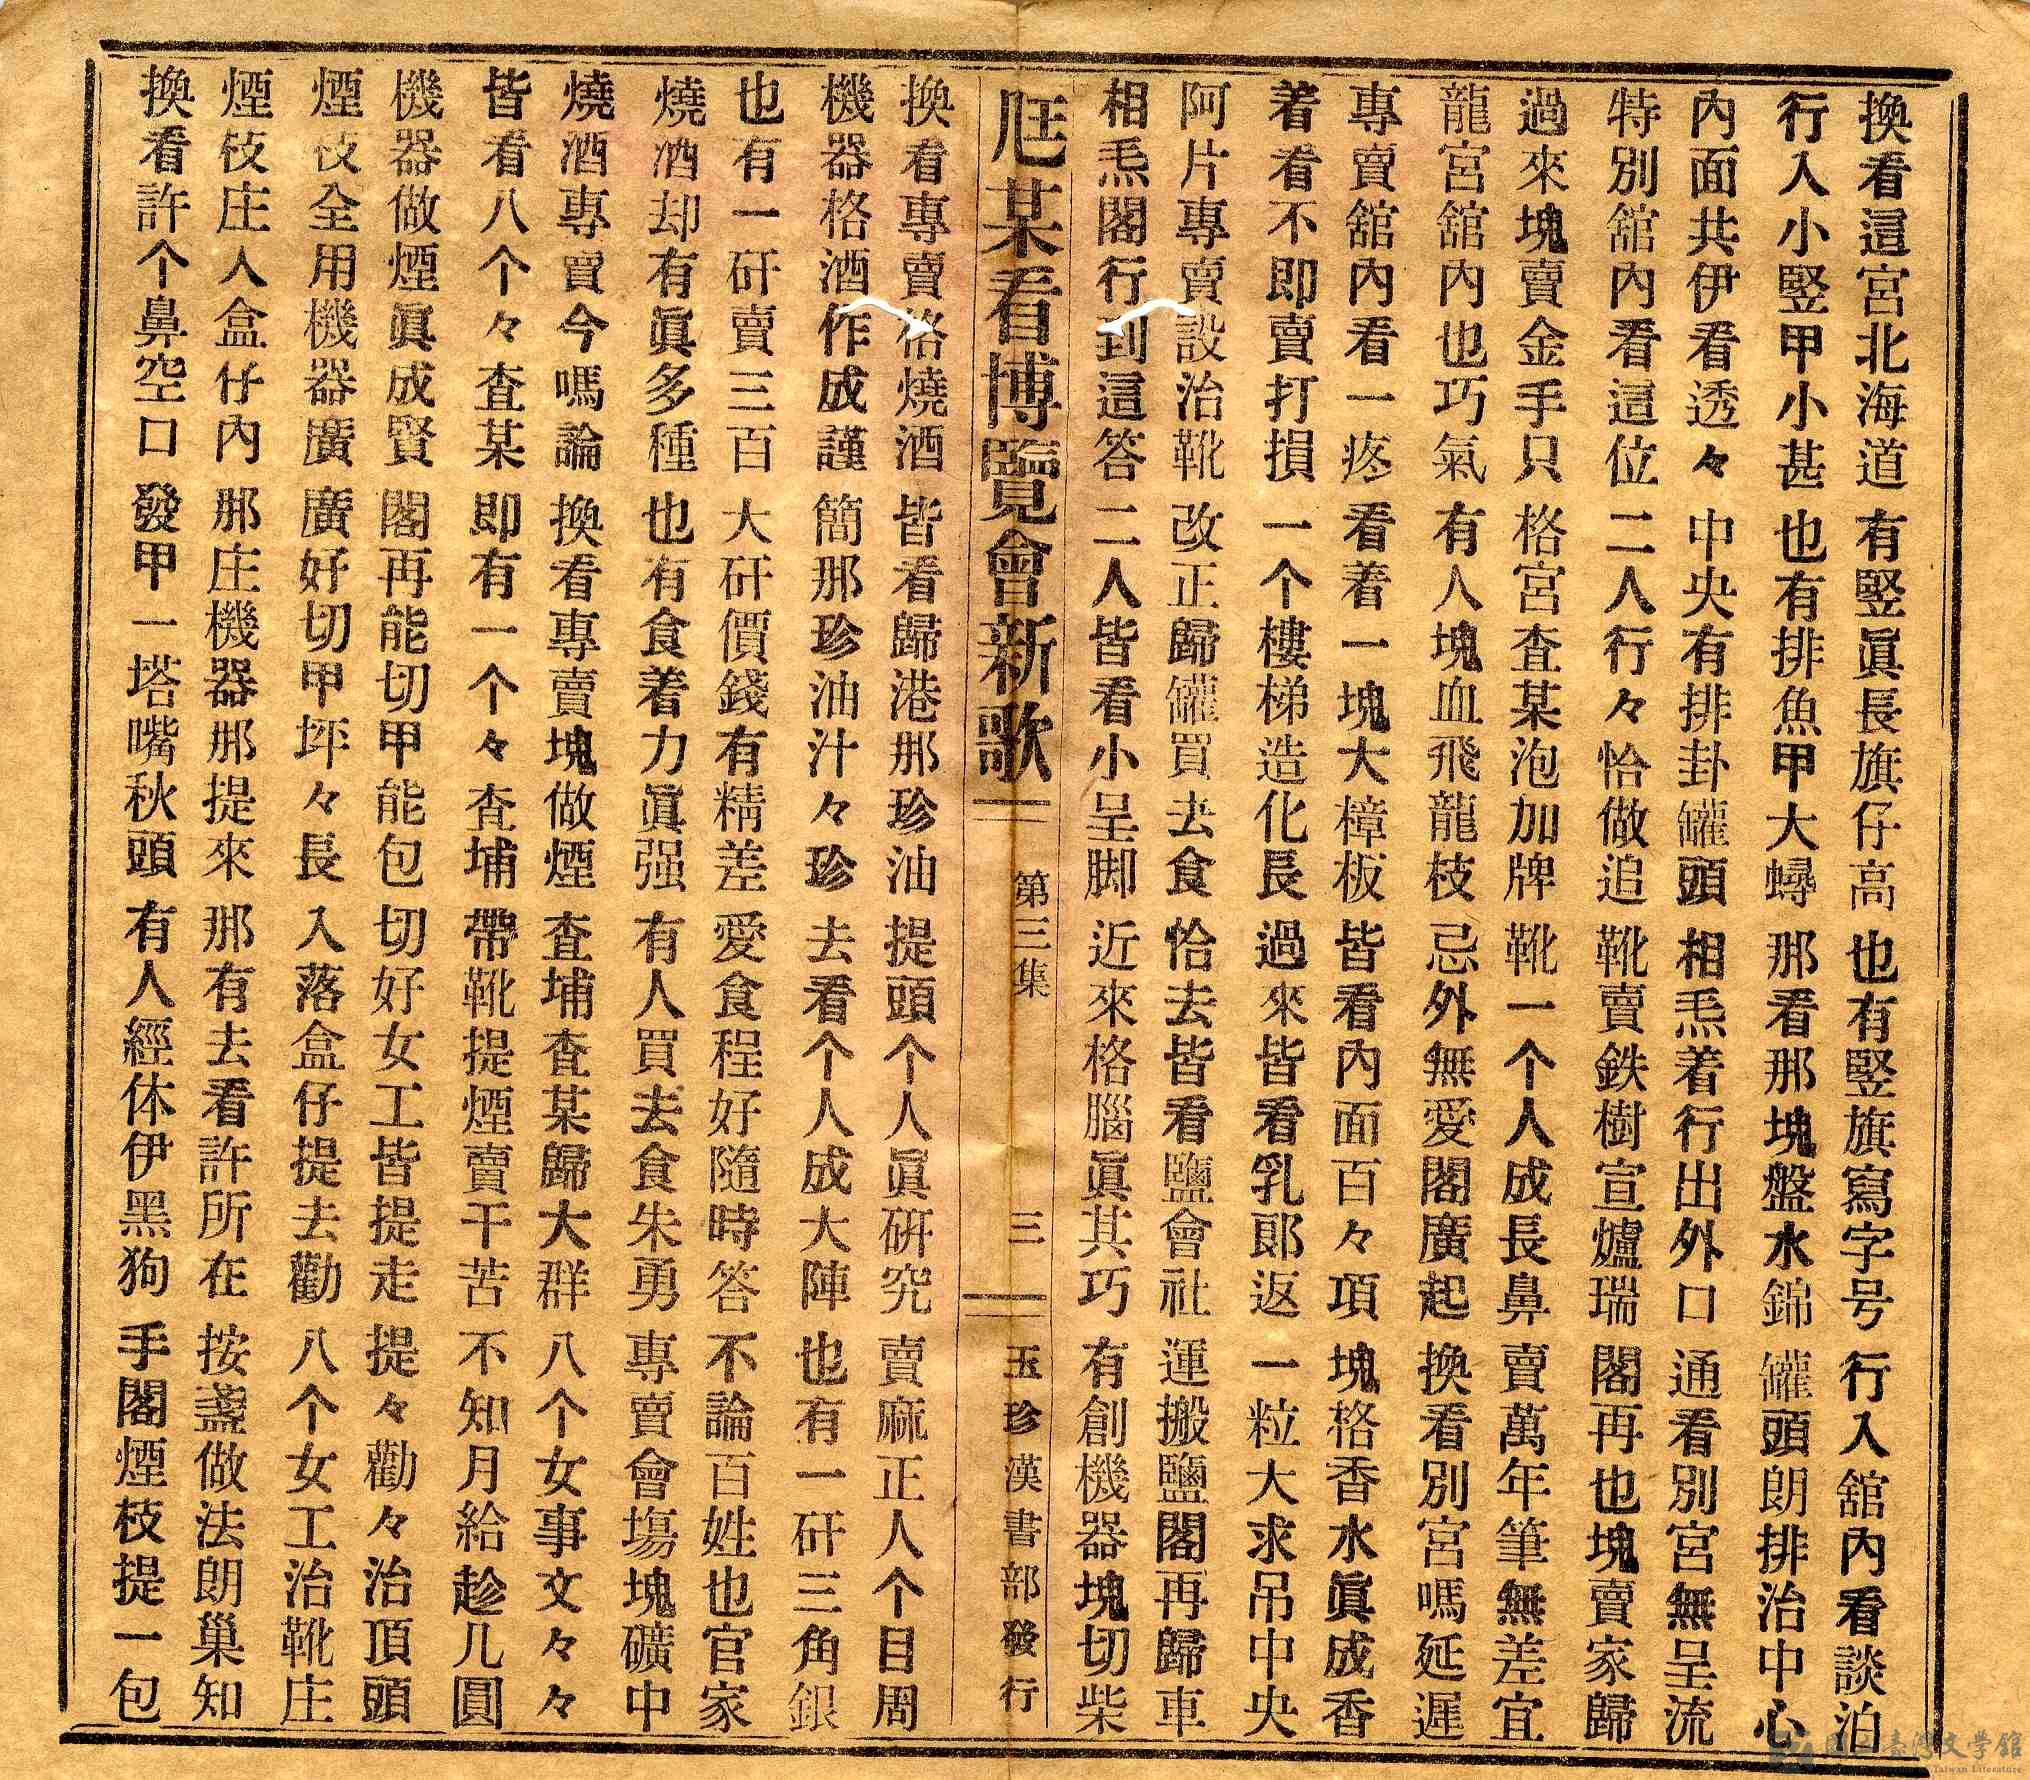 換看這宮北海道 有竪眞長旗仔高 也有竪旗寫字号 行入舘內看談泊
行入小竪甲小甚 也有排魚甲大蟳 那看那塊盤水錦 罐頭朗排治中心
內面共伊看透々 中央有排卦罐頭 相𤆬着行出外口 通看別宮無呈流
特別舘內看這位 二人行々恰做追 靴賣鉄樹宣爐瑞 閣再也塊賣家歸
過來塊賣金手只 格宮査某泡加牌 靴一个人成長鼻 賣萬年筆無差宜
龍宮舘內也巧氣 有人塊血飛龍枝 忌外無愛閣廣起 換看別宮嗎延遲
專賣舘內看一疼 看着一塊大樟板 皆看內面百々項 塊格香水眞成香
着看不即賣打損 一个樓梯造化長 過來皆看乳郞返 一粒大求吊中央
阿片專賣設治靴 改正歸罐買去食 恰去皆看鹽會社 運搬鹽閣再歸車
相𤆬閣行到這答 二人皆看小呈脚 近來格腦眞其巧 有創機器塊切柴
尫某看博覽會新歌 第三集 三 玉珍漢書部發行
換看專賣格燒酒 皆看歸港那珍油 提頭个人眞硏究 賣麻正人个目周
機器格酒作成謹 簡那珍油汁々珍 去看个人成大陣 也有一矸三角銀
也有一矸賣三百 大矸價錢有精差 愛食程好隨時答 不論百姓也官家
燒酒却有眞多種 也有食着力眞强 有人買去食朱勇 專賣會塲塊礦中
燒酒專賣今嗎論 換看專賣塊做煙 査埔査某歸大群 八个女事文々々
皆看八个々査某 即有一个々査埔 帶靴提煙賣干苦 不知月給趁几圓
機器做煙眞成賢 閣再能切甲能包 切好女工皆提走 提々勸々治頂頭
煙枝全用機器廣 廣好切甲坪々長 入落盒仔提去勸 八个女工治靴庄
煙枝庄人盒仔內 那庄機器那提來 那有去看許所在 按盞做法朗巢知
換看許个鼻空口 發甲一塔嘴秋頭 有人經体伊黑狗 手閣煙枝提一包
國立臺灣文學館
Taiwan Literature